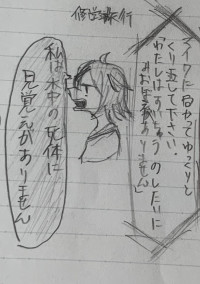 修学旅行
マイクに向かってゆっくりと
くり返して下さい。
「わたしはすいちゅうのしたいに
みおぼえがありません」
私は水中の死体に
見覚えがありません